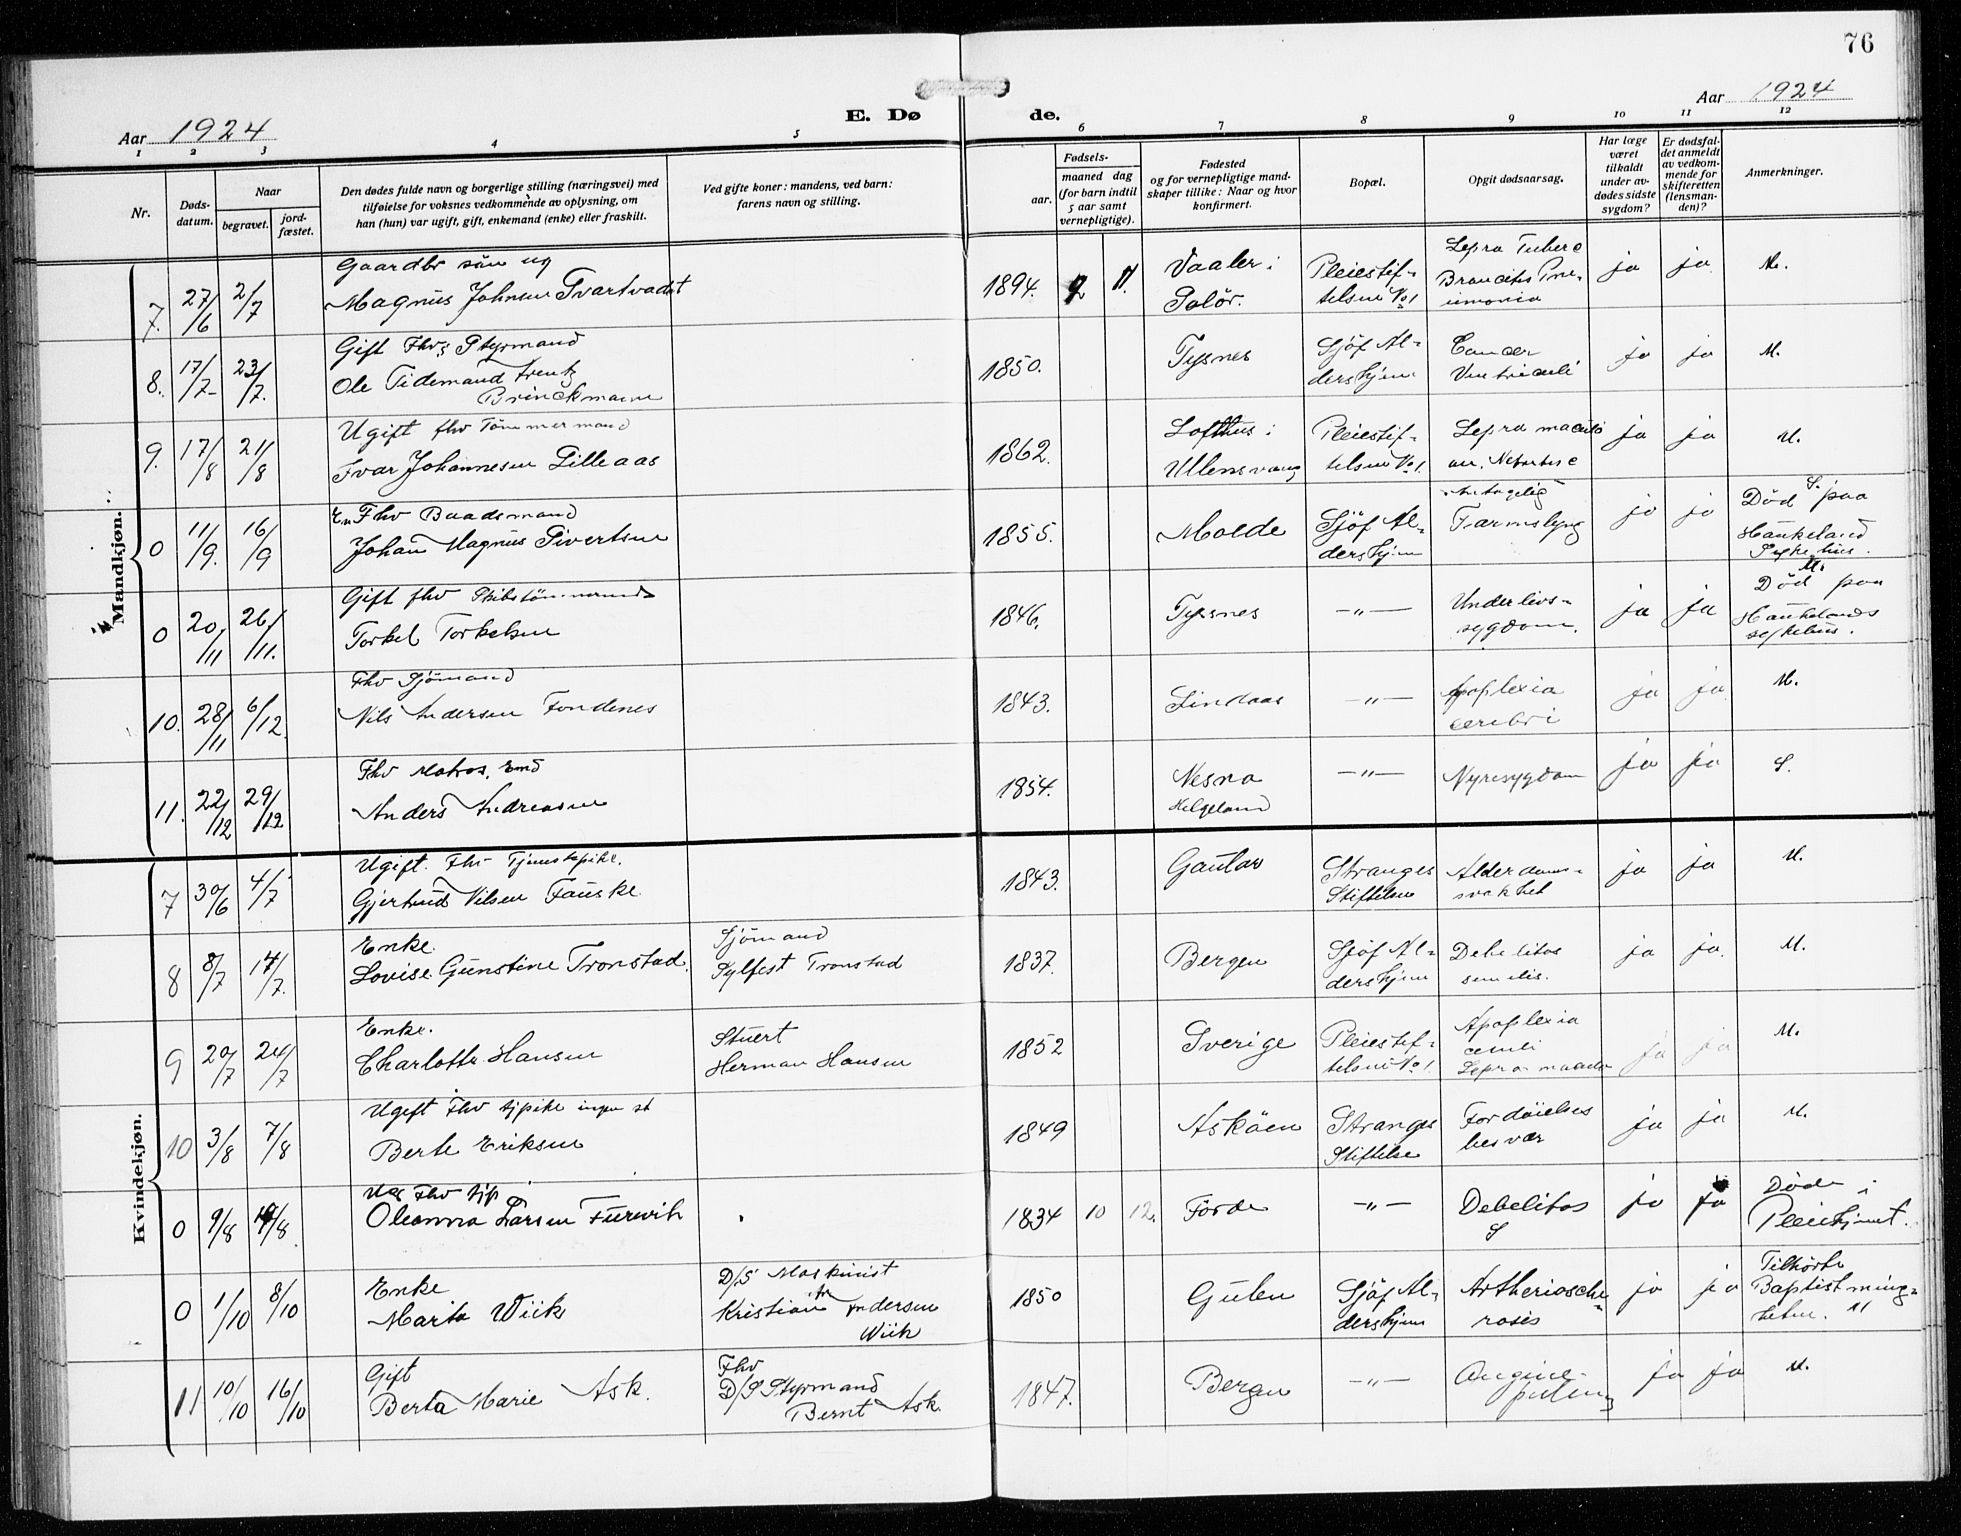 76
Aar 1924
E. Dø de.
Aar 1924
1 2 3 4 5 6 7 8 9 10 11 12
Nr.
Døds-
datum.
Naar
begravet.
jord-
fæstet.
Den dødes fulde navn og borgerlige stilling (næringsvei) med
tilføielse for voksnes vedkommende av oplysning, om
han (hun) var ugift, gift, enkemand (enke) eller fraskilt.
Ved gifte koner: mandens, ved barn:
farens navn og stilling.
Fødsels-
aar.
maaned dag
(for barn indtil
5 aar samt
vernepligtige).
Fødested
og for vernepligtige mand-
skaper tillike: Naar og hvor
konfirmert.
Bopæl.
Opgit dødsaarsag.
Har læge
været
tilkaldt
under av-
dødes sidste
sygdom?
Er dødsfal-
det anmeldt
av vedkom-
mende for
skifteretten
(lensman-
den)?
Anmerkninger.
Mandkjøn.
7. 27/6 2/7
Gaardbr sön ug
Magnus Johnsen Svartvadet
1894. 2 11.
Vaaler i
Solör.
Pleiestif-
telsen No 1
Lepra Tuberc
Broncitis Pne-
umonia
ja ja M.
8. 17/7 23/7.
Gift Fhv; Styrmand
Ole Tidemand Frentz
Brinckmann
1850.
Tysnes
Sjöf Al-
dershjem
Cancer
Ventriculi
ja ja M.
9. 17/8 21/8
Ugift fhv Tömmermand
Ivar Johannesen Lilleaas
1862.
Lofthus i
Ullensvang
Pleiestif-
telsen No 1.
Lepra maculo
ja ja M.
0 11/9. 16/9
Em Fhv Baadsmand
Johan Magnus Sivertsen
1855.
Molde
Sjöf Al-
dershjem
Antagelig
Tarmslyng
ja ja
S.
Död paa
Haukeland
Sykehus.
0 20/11 26/11.
Gift fhv Skibstömmermand
Torkel Torkelsen
1846.
Tysnes
-"-
Underlivs-
sygdom.
ja ja
M.
Död paa
Haukelands
sykehus.
10. 28/11 6/12
Fhv Sjömand
Nils Andersen Fondenes
1843.
Lindaas
-"-
Apoplexia
cerebri
ja ja M.
11. 22/12 29/12
Fhv Matros, Emd
Anders Andreasen
1854.
Nesna
Helgeland
-"-
Nyresygdom
ja ja S.
Kvindekjøn.
7 30/6 4/7
Ugift. Fhv Tjenestepike.
Gjertrud Nilsen Fauske
1843.
Gaular
Stranges
Stiftelsen
Alderdoms-
svakhet
ja ja M.
8 8/7 14/7.
Enke.
Lovise Gunstine Tronstad.
Sjömand
Sylfest Tronstad
1837.
Bergen
Sjöf Al-
dershjem
Debelitas
senilis.
ja ja. M.
9 20/7 24/7
Enke.
Charlotte Hansen
Stuert
Herman Hansen
1852
Sverige
Pleiestif-
telsen No 1.
Apoplexia
Lepra maculo
ja ja M.
10 3/8 7/8
Ugift Fhv tjpike
Berte Eriksen
1849
Asköen
Stranges
Stiftelse
Fordöielses
besvær
ja ja M.
0 9/8 14/8.
Ug Fhv tjp
Oleanna Larsen Furevik
1834 10 12.
Förde
-"-
Debelitas
S
ja ja
Döde i
Pleiehjemmet.
0 1/10 8/10
Enke
Marta Wiik
D/S Maskinist
Kristian Andersen
Wiik
1850
Gulen
Sjöf Al-
dershjem
Artherioscle-
rosis
ja ja
Tilhörte
Baptistmenig-
heten. M
11 10/10 16/10
Gift
Berta Marie Ask.
Fhv
D/S Styrmand
Bernt Ask.
1847.
Bergen
-"-
ja ja M.